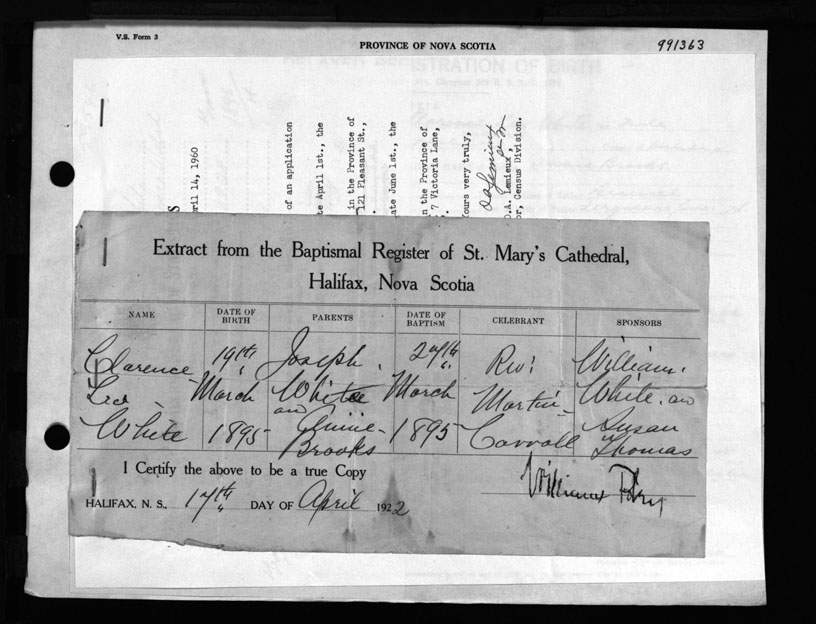 V.S. Form 3
PROVINCE OF NOVA SCOTIA
991363
STRATION OF BIRTH
ril 14, 1960
of an application
te April 1st., the
in the Province of
121 Pleasant St.,
ate June 1st., the
n the Province of
7 Victoria Lane,
ours very truly,
O.A. Lemieux,
or, Census Division.
Extract from the Baptismal Register of St. Mary's Cathedral,
Halifax, Nova Scotia
NAME DATE OF BIRTH PARENTS DATE OF BAPTISM CELEBRANT SPONSORS
Clarence 19th Joseph 27th Rev: William
Leo March White March Martin White and
White 1895 and Annie Brooks 1895 Carroll Susan Thomas
I Certify the above to be a true Copy
HALIFAX, N. S., 17th DAY OF April 1922
William